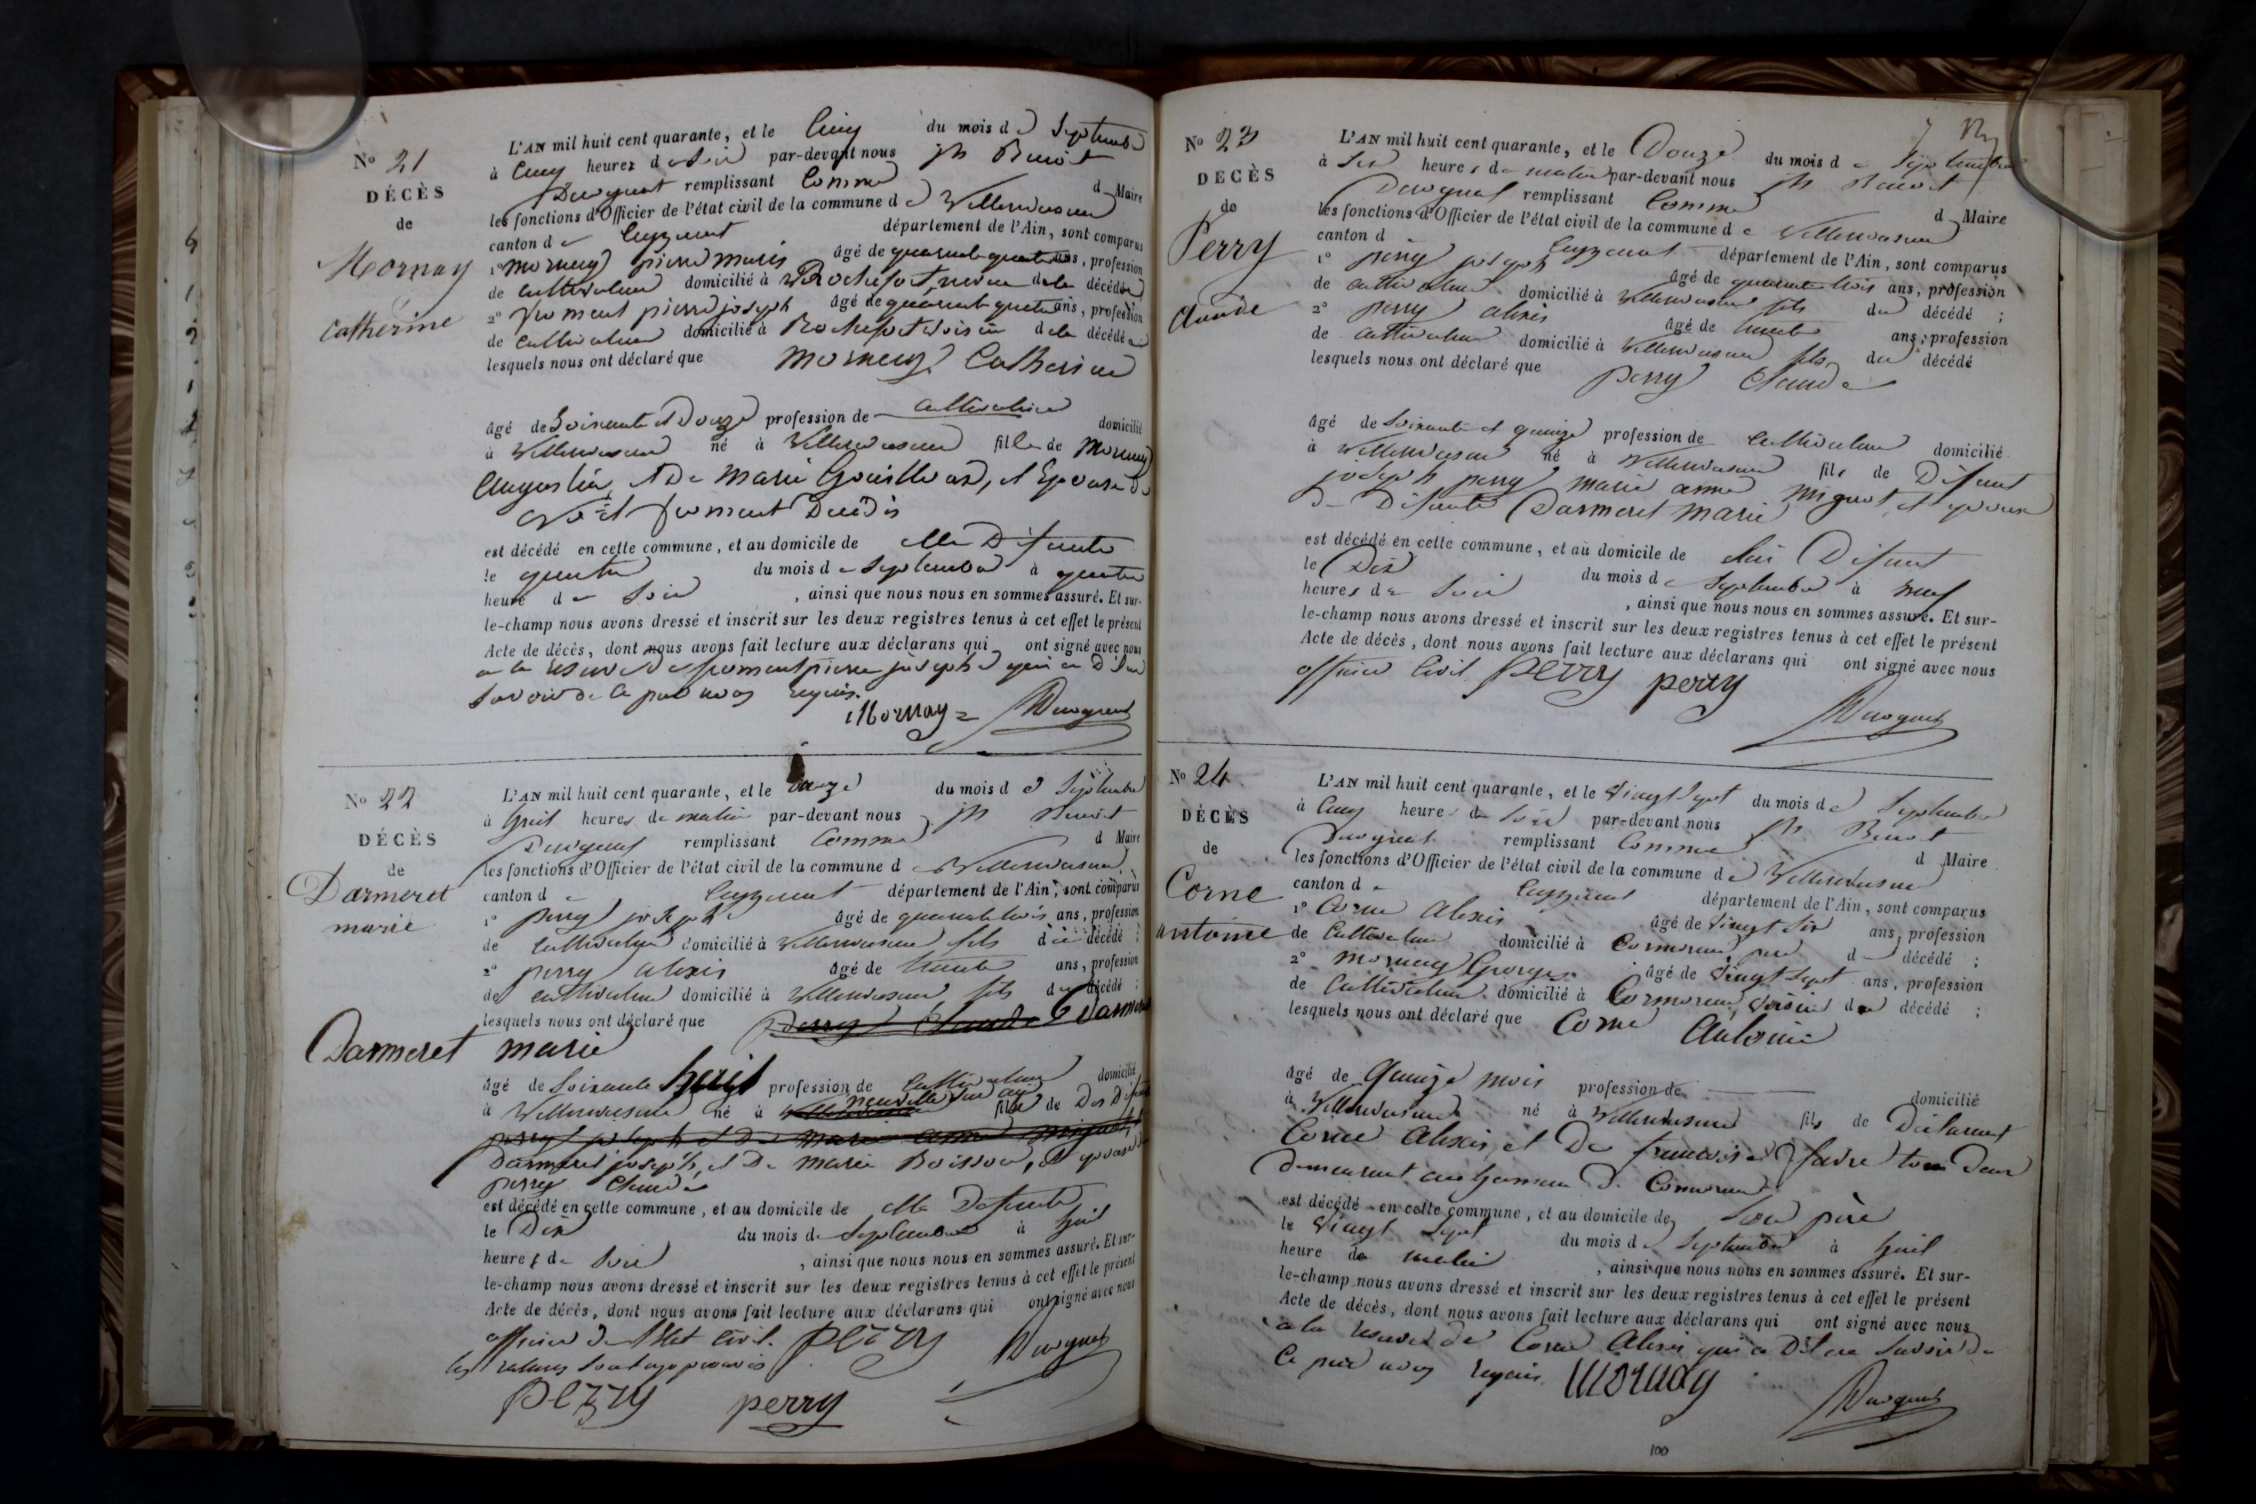 No 21
DÉCÈS
de
Mornay
Catherine
L'AN mil huit cent quarante, et le Cinq du mois de Septembre
à Cinq heures de Soir par-devant nous jh Benoit
Duvognat remplissant Comme d Maire
les fonctions d'Officier de l'état civil de la commune de Villereversure
canton de Ceyzeriat département de l'Ain, sont comparus
1° mornay pierre marie âgé de quarante quatre ans, profession
de cultivateur domicilié à Rochefort, neveu de la décédée
2° froment pierre joseph âgé de quarante quatre ans, profession
de cultivateur domicilié à Rochefort voisin de la décédée
lesquels nous ont déclaré que Mornay Catherine
âgé de Soixante et Douze profession de cultivatrice domicilié
à Villereversure né à Villereversure fille de Mornay
Augustin, et De Marie Gouilloux, et Epouse de
froment
est décédé en cette commune, et au domicile de elle Défunte
le quatre du mois de Septembre à quatre
heure de Soir, ainsi que nous nous en sommes assuré. Et sur-
le-champ nous avons dressé et inscrit sur les deux registres tenus à cet effet le présent
Acte de décès, dont nous avons fait lecture aux déclarans qui ont signé avec nous
a la reserve de froment pierre joseph qui a Dit ne
Savoir de Ce par nous requis.
Mornay Duvognat
No 22
DÉCÈS
de
Darmeret
marie
L'AN mil huit cent quarante, et le Douze du mois de Septembre
à huit heures de matin par-devant nous jh Benoit
Duvognat remplissant Comme d Maire
les fonctions d'Officier de l'état civil de la commune de Villereversure
canton de Ceyzeriat département de l'Ain, sont comparus
1° perry joseph âgé de quarante trois ans, profession
de cultivateur domicilié à Villereversure fils de décédé ;
2° perry alexis âgé de trente ans, profession
de cultivateur domicilié à Villereversure fils du décédé ;
lesquels nous ont déclaré que perry Claude Darmeret
Darmeret marie
âgé de Soixante huit profession de Cultivateur domicilié
à Villereversure né à Villereversure neuville sur ain fille de Des défunts
perry joseph et De marie anne mignot, et
Darmeret joseph, et De marie Boisson, et epouse de
perry Claude
est décédé en cette commune, et au domicile de elle Défunte
le Dix du mois de Septembre à huit
heures de Soir, ainsi que nous nous en sommes assuré. Et sur-
le-champ nous avons dressé et inscrit sur les deux registres tenus à cet effet le présent
Acte de décès, dont nous avons fait lecture aux déclarans qui ont signé avec nous
officier de l'Etat Civil. perry Duvognat
les ratures Sont approuvées
perry perry
No 23
DÉCÈS
de
Perry
Claude
L'AN mil huit cent quarante, et le Douze du mois de Septembre
à Six heures de matin par-devant nous jh Benoit
Duvognat remplissant Comme d Maire
les fonctions d'Officier de l'état civil de la commune de Villereversure
canton d Ceyzeriat département de l'Ain, sont comparus
1° perry joseph âgé de quarante trois ans, profession
de cultivateur domicilié à Villereversure fils du décédé ;
2° perry alexis âgé de trente ans, profession
de cultivateur domicilié à Villereversure fils du décédé
lesquels nous ont déclaré que perry Claude
âgé de Soixante et quinze profession de Cultivateur domicilié
à Villereversure né à Villereversure fils de Défunt
joseph perry marie anne mignot, et epoux
de Défunte Darmeret Marie
est décédé en cette commune, et au domicile de lui Défunt
le Dix du mois de Septembre à neuf
heures de Soir, ainsi que nous nous en sommes assuré. Et sur-
le-champ nous avons dressé et inscrit sur les deux registres tenus à cet effet le présent
Acte de décès, dont nous avons fait lecture aux déclarans qui ont signé avec nous
officier Civil perry perry
Duvognat
No 24
DÉCÈS
de
Corne
antoine
L'AN mil huit cent quarante, et le Vingt Sept du mois de Septembre
à Cinq heures de Soir par-devant nous jh. Benoit
Duvognat remplissant Comme d Maire
les fonctions d'Officier de l'état civil de la commune de Villereversure
canton de Ceyzeriat département de l'Ain, sont comparus
1° Corne Alexis âgé de Vingt Six ans, profession
de Cultivateur domicilié à Cormoreux, père d décédé ;
2° Mornay Georges âgé de Vingt Sept ans, profession
de Cultivateur domicilié à Cormoreux, Voisin du décédé ;
lesquels nous ont déclaré que Corne Antoine
âgé de Quinze mois profession de domicilié
à Villereversure né à Villereversure fils de Déclarant
Corne Alexis, et De francoise favre tous Deux
demeurant au hameau de Cormoreux
est décédé en cette commune, et au domicile de Son père
le Vingt Sept du mois de Septembre à huit
heure de matin, ainsi que nous nous en sommes assuré. Et sur-
le-champ nous avons dressé et inscrit sur les deux registres tenus à cet effet le présent
Acte de décès, dont nous avons fait lecture aux déclarans qui ont signé avec nous
a la reserve de Corne Alexis qui a Dit ne Savoir De
Ce par nous requis. Mornay
Duvognat
100